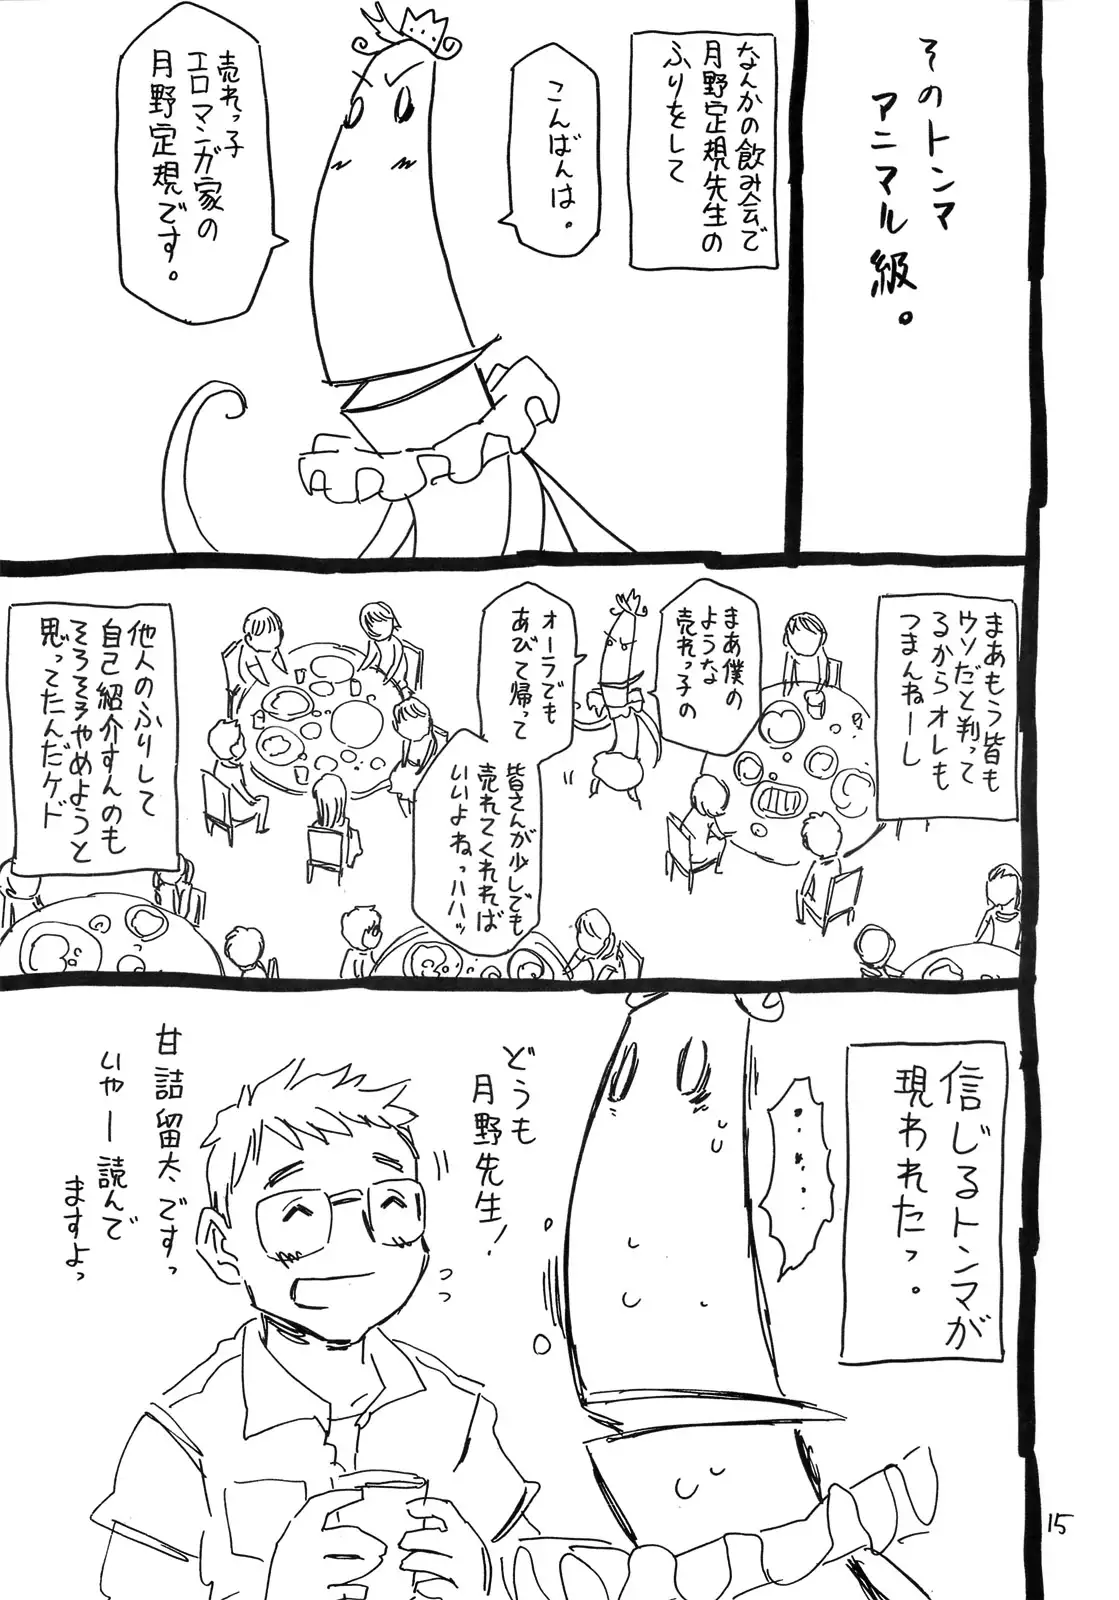 そのトンマ
アニマル級。
なんかの飲み会で
月野定規先生の
ふりをして
こんばんは。
売れっ子
エロマンガ家の
月野定規です。
まあもう皆も
ウソだと判って
るからオレも
つまんねーし
まあ僕の
ような
売れっ子の
オーラでも
あびて帰って
皆さんが少しでも
売れてくれれば
いいよねっハハッ
他人のふりして
自己紹介すんのも
そろそろやめようと
思ってたんだケド
信じるトンマが
現われたっ。
・・・・・・
どうも
月野先生!
甘詰留太ですっ
いやー読んで
ますよっ
15